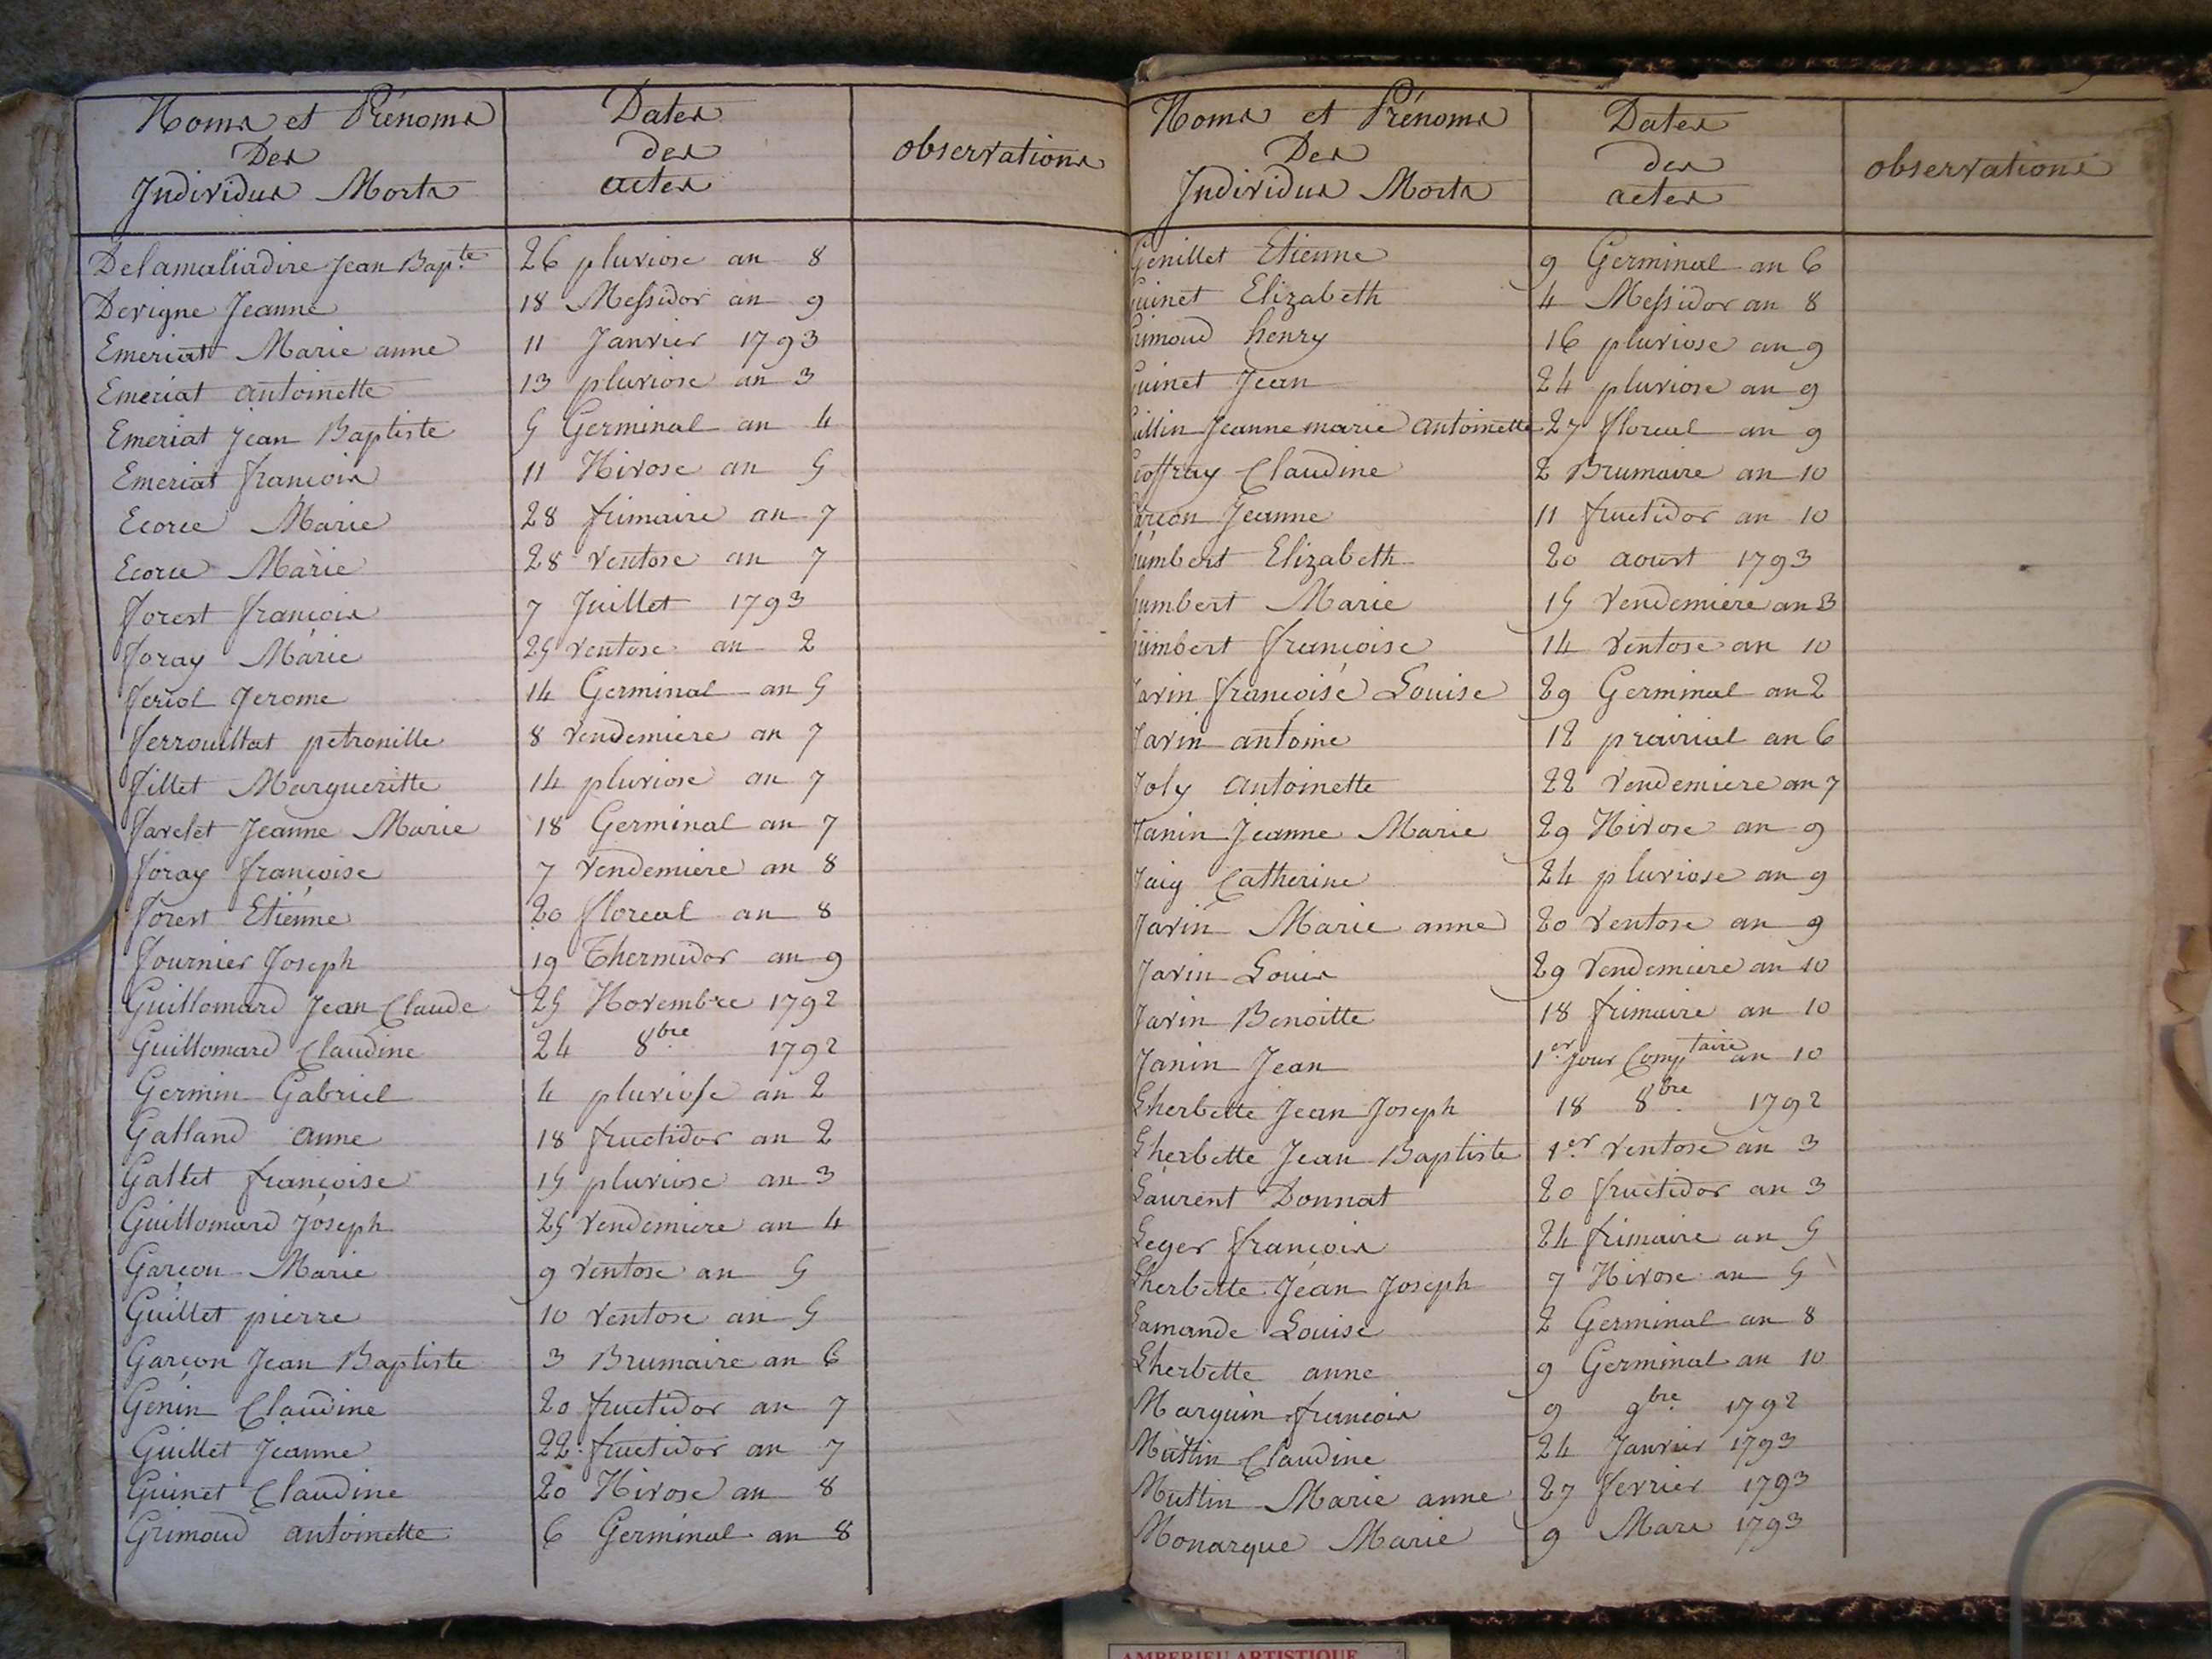 Noms et Prénoms
Des
Individus Morts
Dates
des
actes
observations
Delamaliadire Jean Bap.te 26 pluviose an 8
Devigne Jeanne 18 Messidor an 9
Emeriat Marie anne 11 Janvier 1793
Emeriat antoinette 13 pluviose an 3
Emeriat Jean Baptiste 5 Germinal an 4
Emeriat francois 11 Nivose an 5
Ecorce Marie 28 frimaire an 7
Ecorce Marie 28 ventose an 7
forest francois 7 Juillet 1793
foray Marie 25 ventose an 2
feriol Jerome 14 Germinal an 5
ferrouillat petronille 8 vendemiere an 7
fillet Margueritte 14 pluviose an 7
favelet Jeanne Marie 18 Germinal an 7
foray françoise 7 vendemiere an 8
forest Etienne 20 floreal an 8
fournier Joseph 19 Thermidor an 9
Guillomard Jean Claude 25 Novembre 1792
Guillomard Claudine 24 8bre 1792
Germin Gabriel 4 pluviose an 2
Galland anne 18 fructidor an 2
Gallet francoise 15 pluviose an 3
Guillomard Joseph 25 vendemiere an 4
Garçon Marie 9 ventose an 5
Guillet pierre 10 ventose an 5
Garcon Jean Baptiste 3 Brumaire an 6
Génin Claudine 20 fructidor an 7
Guillet Jeanne 22 fructidor an 7
Guinet Claudine 20 Nivose an 8
Grimoud antoinette 6 Germinal an 8
Noms et Prénoms
Des
Individus Morts
Dates
des
actes
observations
Génillet Etienne 9 Germinal an 6
Guinet Elizabeth 4 Messidor an 8
Grimoud henry 16 pluviose an 9
Guinet Jean 24 pluviose an 9
Jeanne marie antoinette 27 floreal an 9
Geoffray Claudine 2 Brumaire an 10
Garcon Jeanne 11 fructidor an 10
humbert Elizabeth 20 aoust 1793
humbert Marie 15 vendemiere an 3
humbert françoise 14 ventose an 10
Javin francoise Louise 29 Germinal an 2
Javin antoine 12 prairial an 6
Joly antoinette 22 vendemiere an 7
Janin Jeanne Marie 29 Nivose an 9
Catherine 24 pluviose an 9
Javin Marie anne 20 ventose an 9
Javin Louis 29 vendemiere an 10
Javin Benoitte 18 frimaire an 10
Janin Jean 1er Jour Comptaire an 10
Lherbette Jean Joseph 18 8bre 1792
Lherbette Jean Baptiste 1er ventose an 3
Laurent Donnat 20 fructidor an 3
Leger francois 24 frimaire an 5
Lherbette Jean Joseph 7 Nivose an 5
Lamande Louise 2 Germinal an 8
Lherbette anne 9 Germinal an 10
Marguin francois 9 9bre 1792
Mutlin Claudine 24 Janvier 1793
Mutlin Marie anne 27 fevrier 1793
Monarque Marie 9 Mars 1793
AMBERIEU ARTISTIQUE